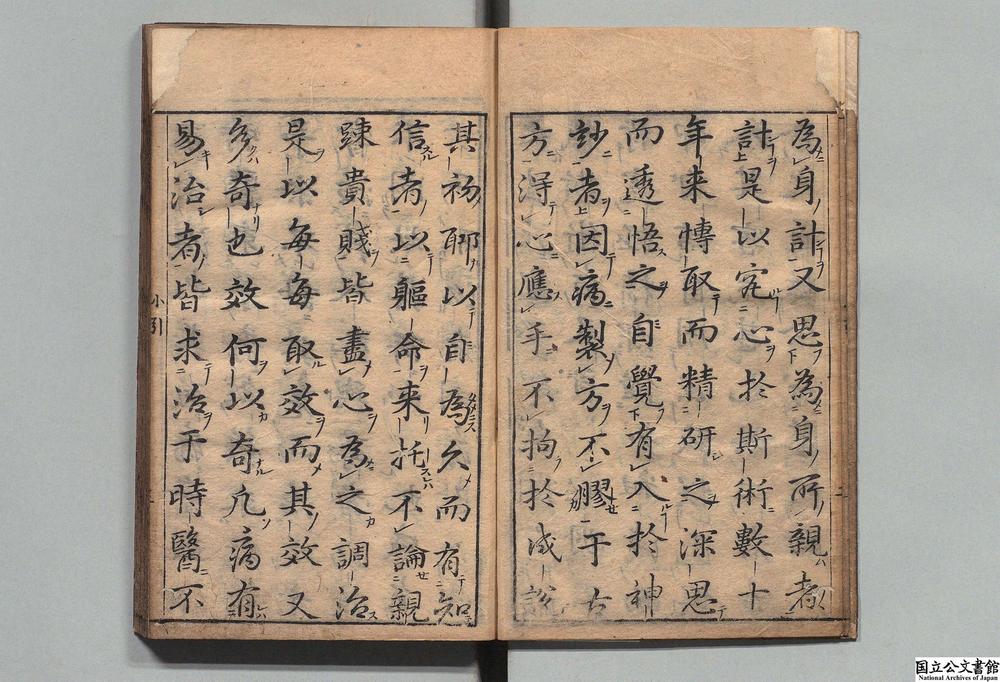 為身計又思為身所親者
計是以究心於斯術數十
年来慱取而精研之深思
而透悟之自覺有入於神
玅者因病製方不膠于古
方得心應手不拘於成說
其初聊以自為久而有知
信者以軀命来托不論親
踈貴賤皆盡心為之調治
是以每每取效而其效又
多奇也效何以奇凢病有
易治者皆求治于時醫不
小引
国立公文書館
National Archives of Japan